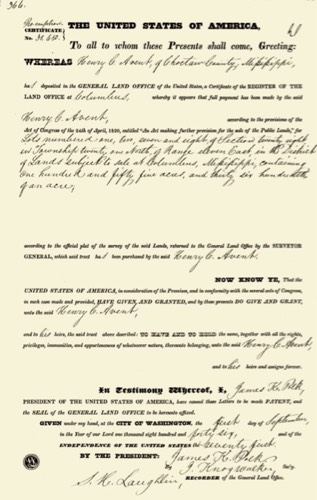 366.
Preemption
CERTIFICATE
No. 32.650.
THE UNITED STATES OF AMERICA,
To all to whom these Presents shall come, Greeting:
WHEREAS Henry C. Avent, of Choctaw County, Mississippi,
has deposited in the GENERAL LAND OFFICE of the United States, a Certificate of the REGISTER OF THE
LAND OFFICE at Columbus, whereby it appears that full payment has been made by the said
Henry C. Avent, according to the provisions of the
Act of Congress of the 24th of April, 1820, entitled "An Act making further provision for the sale of the Public Lands," for
Lots numbered one, two, seven and eight, of Section twenty eight
in Township twenty one North, of Range eleven East, in the District
of Lands subject to sale at Columbus, Mississippi, containing
one hundred and fifty five acres, and thirty six hundredths
of an acre,
according to the official plat of the survey of the said Lands, returned to the General Land Office by the SURVEYOR
GENERAL, which said tract has been purchased by the said Henry C. Avent,
NOW KNOW YE, That the
UNITED STATES OF AMERICA, in consideration of the Premises, and in conformity with the several acts of Congress,
in such case made and provided, HAVE GIVEN AND GRANTED, and by these presents DO GIVE AND GRANT,
unto the said Henry C. Avent,
and to his heirs, the said tract above described: TO HAVE AND TO HOLD the same, together with all the rights,
privileges, immunities, and appurtenances of whatsoever nature, thereunto belonging, unto the said Henry C. Avent,
and to his heirs and assigns forever.
In Testimony Whereof, I, James K. Polk
PRESIDENT OF THE UNITED STATES OF AMERICA, have caused these Letters to be made PATENT, and
the SEAL of the GENERAL LAND OFFICE to be hereunto affixed.
GIVEN under my hand, at the CITY OF WASHINGTON, the first day of September,
in the Year of our Lord one thousand eight hundred and forty six, and of the
INDEPENDENCE OF THE UNITED STATES the seventy first.
BY THE PRESIDENT: James K. Polk
By J. Knox Walker, Sec'y.
S. H. Laughlin, RECORDER of the General Land Office.